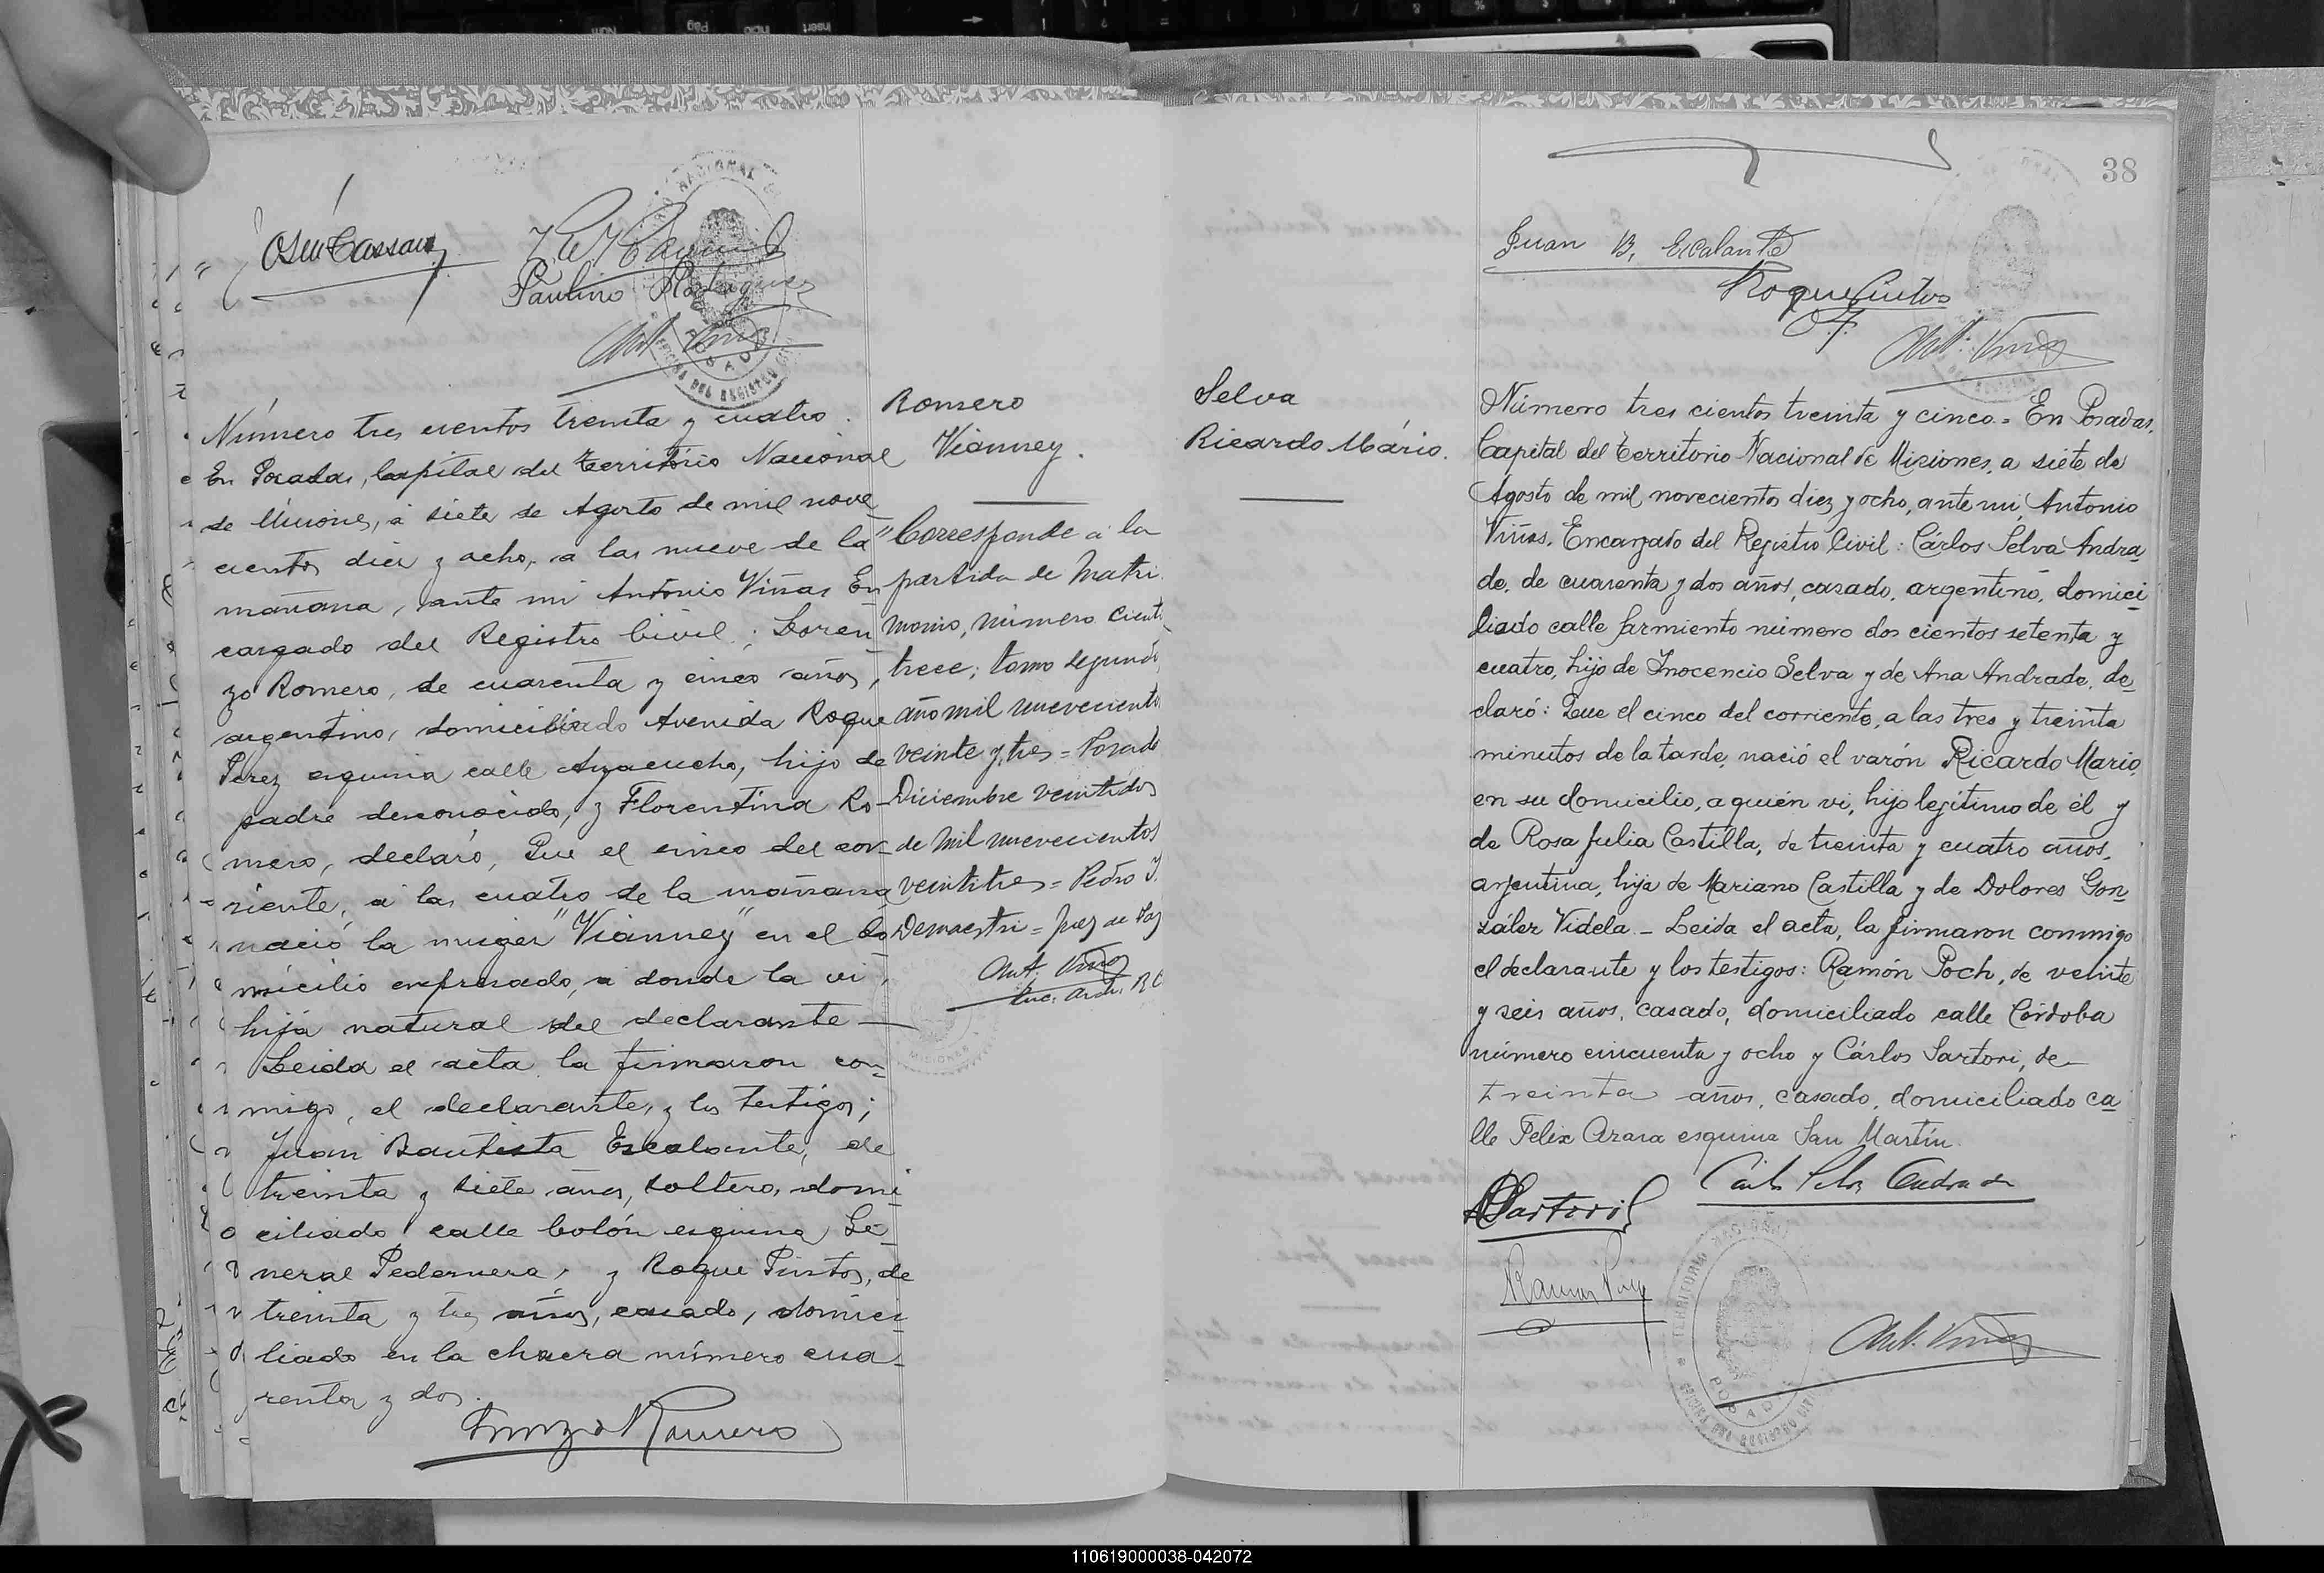 Paulino Rodriguez
Ant. Viñas
Número tres cientos treinta y cuatro.
En Posadas, Capital del Territorio Nacional
de Misiones, á siete de Agosto de mil nove
cientos diez y ocho, a las nueve de la
mañana, ante mi Antonio Viñas En
cargado del Registro Civil; Loren
zo Romero, de cuarenta y cinco años,
argentino, domiciliado Avenida Roque
Perez esquina calle Ayacucho, hijo de
padre desconocido, y Florentina Ro-
mero, declaró, Que el cinco del cor-
riente, á las cuatro de la mañana
nació la muger "Vianney" en el do
micilio expresado, a donde la vi,
hija natural del declarante—
Leida el acta la firmaron con-
migo, el declarante, y los testigos;
Juan Bautista Escalante, de
treinta y siete años, soltero, domi
ciliado calle Colón esquina Ge-
neral Pedernera, y Roque Pintos, de
treinta y tres años, casado, domici-
liado en la chacra número cua-
renta y dos.
Lorenzo Romero
Romero
Vianney.
"Corresponde á la
partida de Matri
monio, número ciento
trece; tomo segundo
año mil nuevecientos
veinte y tres = Posadas
Diciembre veintidos
de mil nuevecientos
veintitres = Pedro J.
Demaestri = Juez de Paz
Ant. Viñas
Enc. Arch. R C
MISIONES
38
Juan B. Escalante
Roque Pintos
Ant. Viñas
Selva
Ricardo Mário.
Número tres cientos treinta y cinco.= En Posadas,
Capital del Territorio Nacional de Misiones, a siete de
Agosto de mil novecientos diez y ocho, ante mi, Antonio
Viñas, Encargado del Registro Civil: Cárlos Selva Andra
de, de cuarenta y dos años, casado, argentino, domici
liado calle Sarmiento número dos cientos setenta y
cuatro, hijo de Inocencio Selva y de Ana Andrade, de
claró: Que el cinco del corriente, a las tres y treinta
minutos de la tarde, nació el varón Ricardo Mario,
en su domicilio, a quién vi, hijo legítimo de él y
de Rosa Julia Castilla, de treinta y cuatro años,
argentina, hija de Mariano Castilla y de Dolores Gon
zález Videla.- Leida el acta, la firmaron conmigo
el declarante y los testigos: Ramón Poch, de veinte
y seis años, casado, domiciliado calle Córdoba
número cincuenta y ocho y Cárlos Sartori, de
treinta años, casado, domiciliado ca
lle Felix Azara esquina San Martín.
Carlos Selva Andrade
CSartori
Ramon Poch
TERRITORIO NACIONAL
POSADAS
OFICINA DEL REGISTRO CIVIL
Ant. Viñas
110619000038-042072